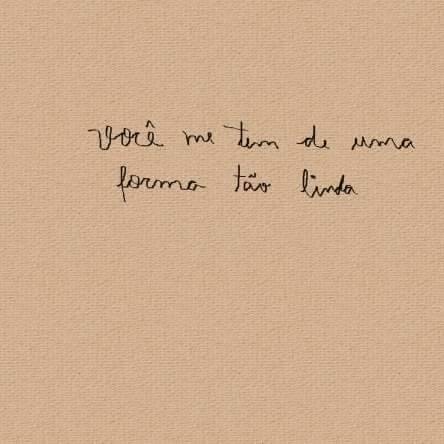 Você me tem de uma
forma tão linda